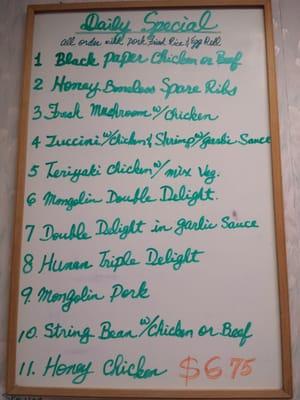 Daily Special
all order with pork Fried Rice & Egg Roll
1 Black Paper Chicken or Beef
2 Honey Boneless Spare Ribs
3 Fresh Mushroom w/ chicken
4 Zuccini w/ chicken & Shrimp w/ garlic Sauce
5 Teriyaki chicken w/ mix Veg.
6 Mongolin Double Delight.
7 Double Delight in garlic Sauce
8 Hunan Triple Delight
9. Mongolin Pork
10. String Bean w/ Chicken or Beef
11. Honey Chicken $6.75